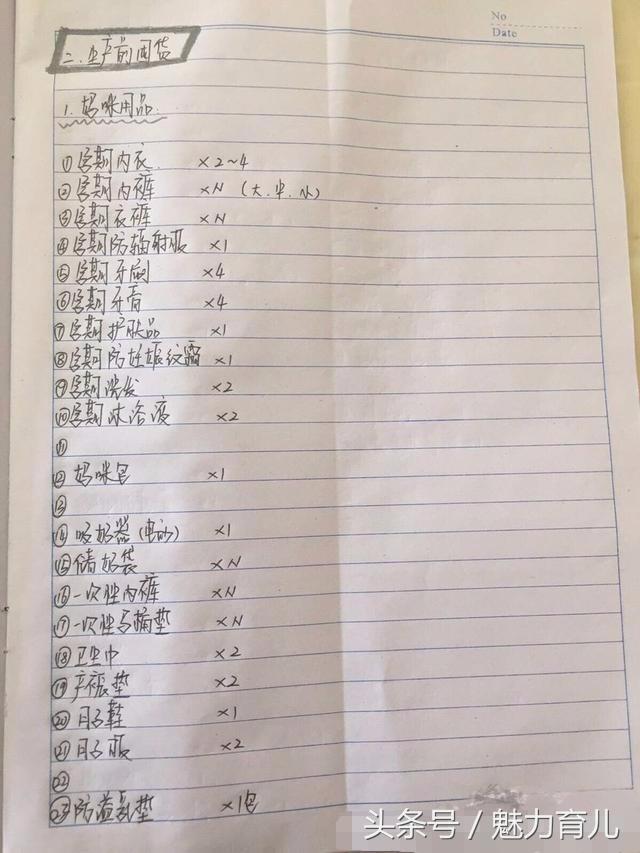 No
Date
二.生产前囤货
1.妈咪用品
①孕期内衣 ×2~4
②孕期内裤 ×N (大.中.小)
③孕期衣裤 ×N
④孕期防辐射服 ×1
⑤孕期牙刷 ×4
⑥孕期牙膏 ×4
⑦孕期护肤品 ×1
⑧孕期防妊娠纹霜 ×1
⑨孕期洗发 ×2
⑩孕期沐浴液 ×2
⑪
⑫妈咪包 ×1
⑬
⑭吸奶器(电动) ×1
⑮储奶袋 ×N
⑯一次性内裤 ×N
⑰一次性马桶垫 ×N
⑱卫生巾 ×2
⑲产褥垫 ×2
⑳月子鞋 ×1
㉑月子服 ×2
㉒
㉓防溢乳垫 ×1包
头条号/魅力育儿